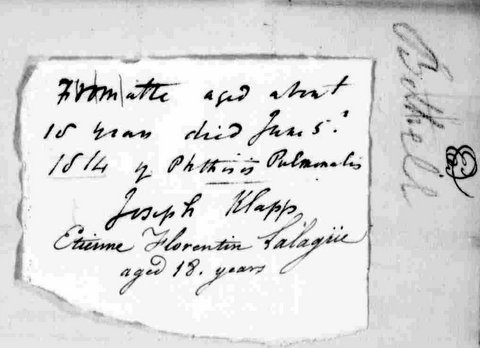 aged about
18 years died June 5.
1814 of Phthisis Pulmonalis
Joseph Klapp
Etienne Florentin Lalagüe
aged 18. years
Bethell